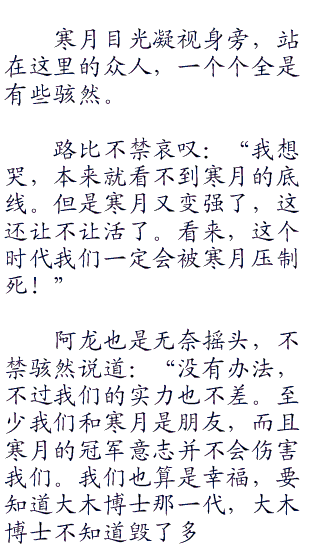 寒月目光凝视身旁，站
在这里的众人，一个个全是
有些骇然。
路比不禁哀叹：“我想
哭，本来就看不到寒月的底
线。但是寒月又变强了，这
还让不让活了。看来，这个
时代我们一定会被寒月压制
死！”
阿龙也是无奈摇头，不
禁骇然说道：“没有办法，
不过我们的实力也不差。至
少我们和寒月是朋友，而且
寒月的冠军意志并不会伤害
我们。我们也算是幸福，要
知道大木博士那一代，大木
博士不知道毁了多